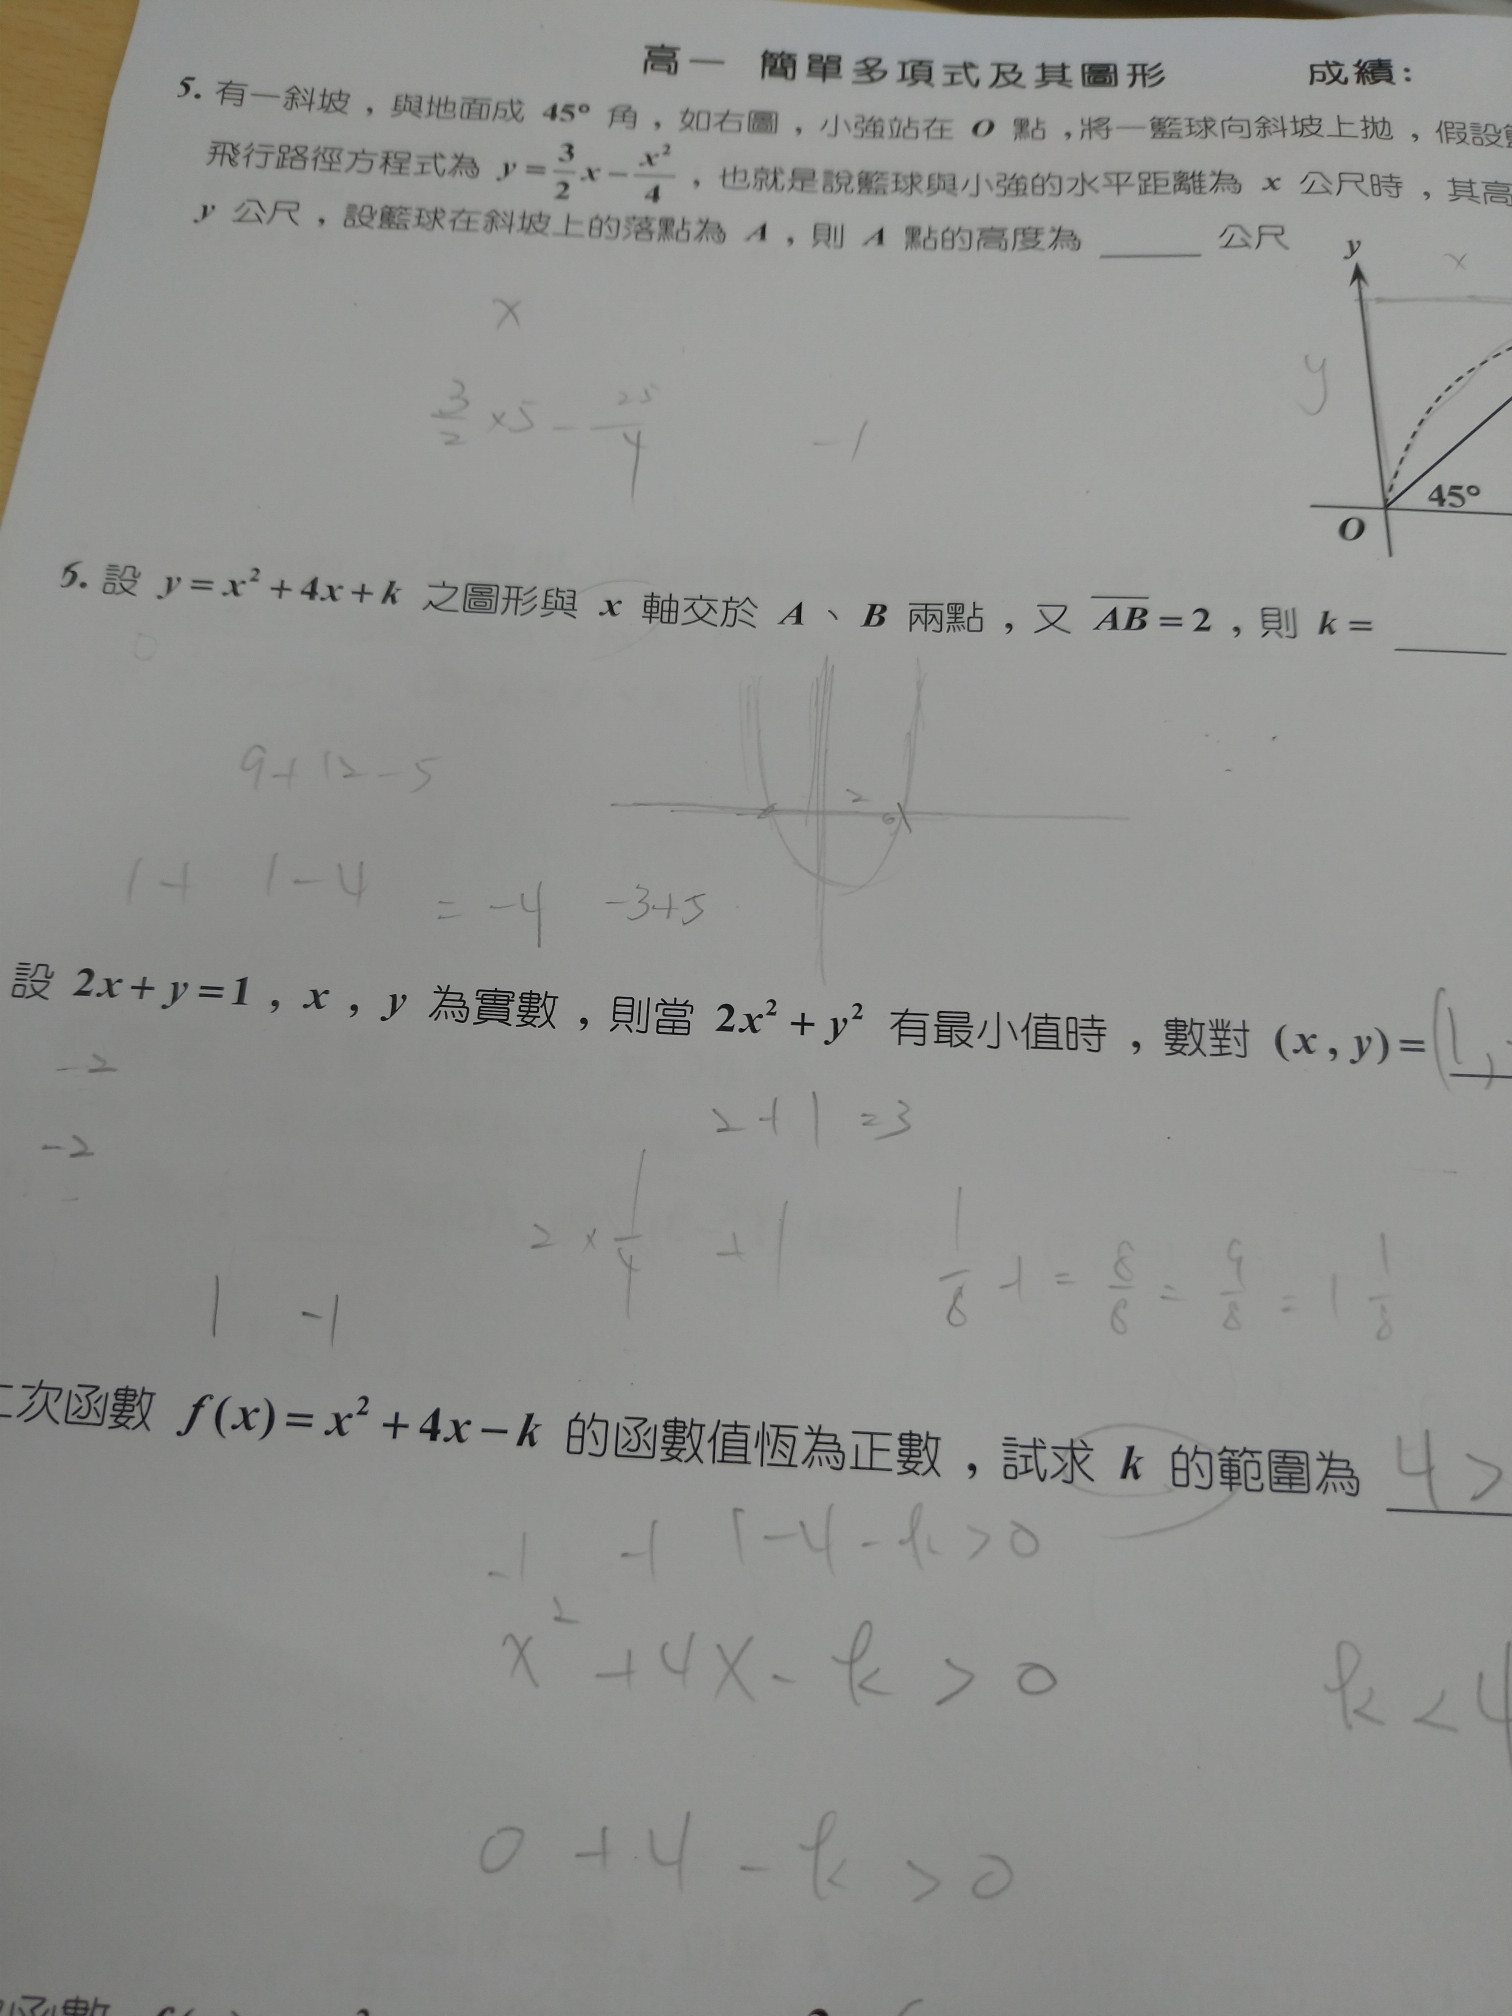 高一 簡單多項式及其圖形 成績:
5. 有一斜坡，與地面成 45° 角，如右圖，小強站在 O 點，將一籃球向斜坡上拋，假設
飛行路徑方程式為 y=3/2x-x²/4，也就是說籃球與小強的水平距離為 x 公尺時，其高
y 公尺，設籃球在斜坡上的落點為 A，則 A 點的高度為 ____ 公尺
y
x
x
y
3/2 ×5 - 25/4
-1
45°
O
5. 設 y=x²+4x+k 之圖形與 x 軸交於 A、B 兩點，又 AB=2，則 k= ____
0
9+12-5
2
1+ 1-4 = -4 -3+5
設 2x+y=1，x，y 為實數，則當 2x²+y² 有最小值時，數對 (x,y)=(1,
-2
2+1=3
-2
2×1/4 +1
1/8+1=8/8=9/8=1 1/8
1 -1
二次函數 f(x)=x²+4x-k 的函數值恆為正數，試求 k 的範圍為 4>
-1 -1 1-4-k>0
x²+4x-k>0
k<4
0+4-k>0
函數